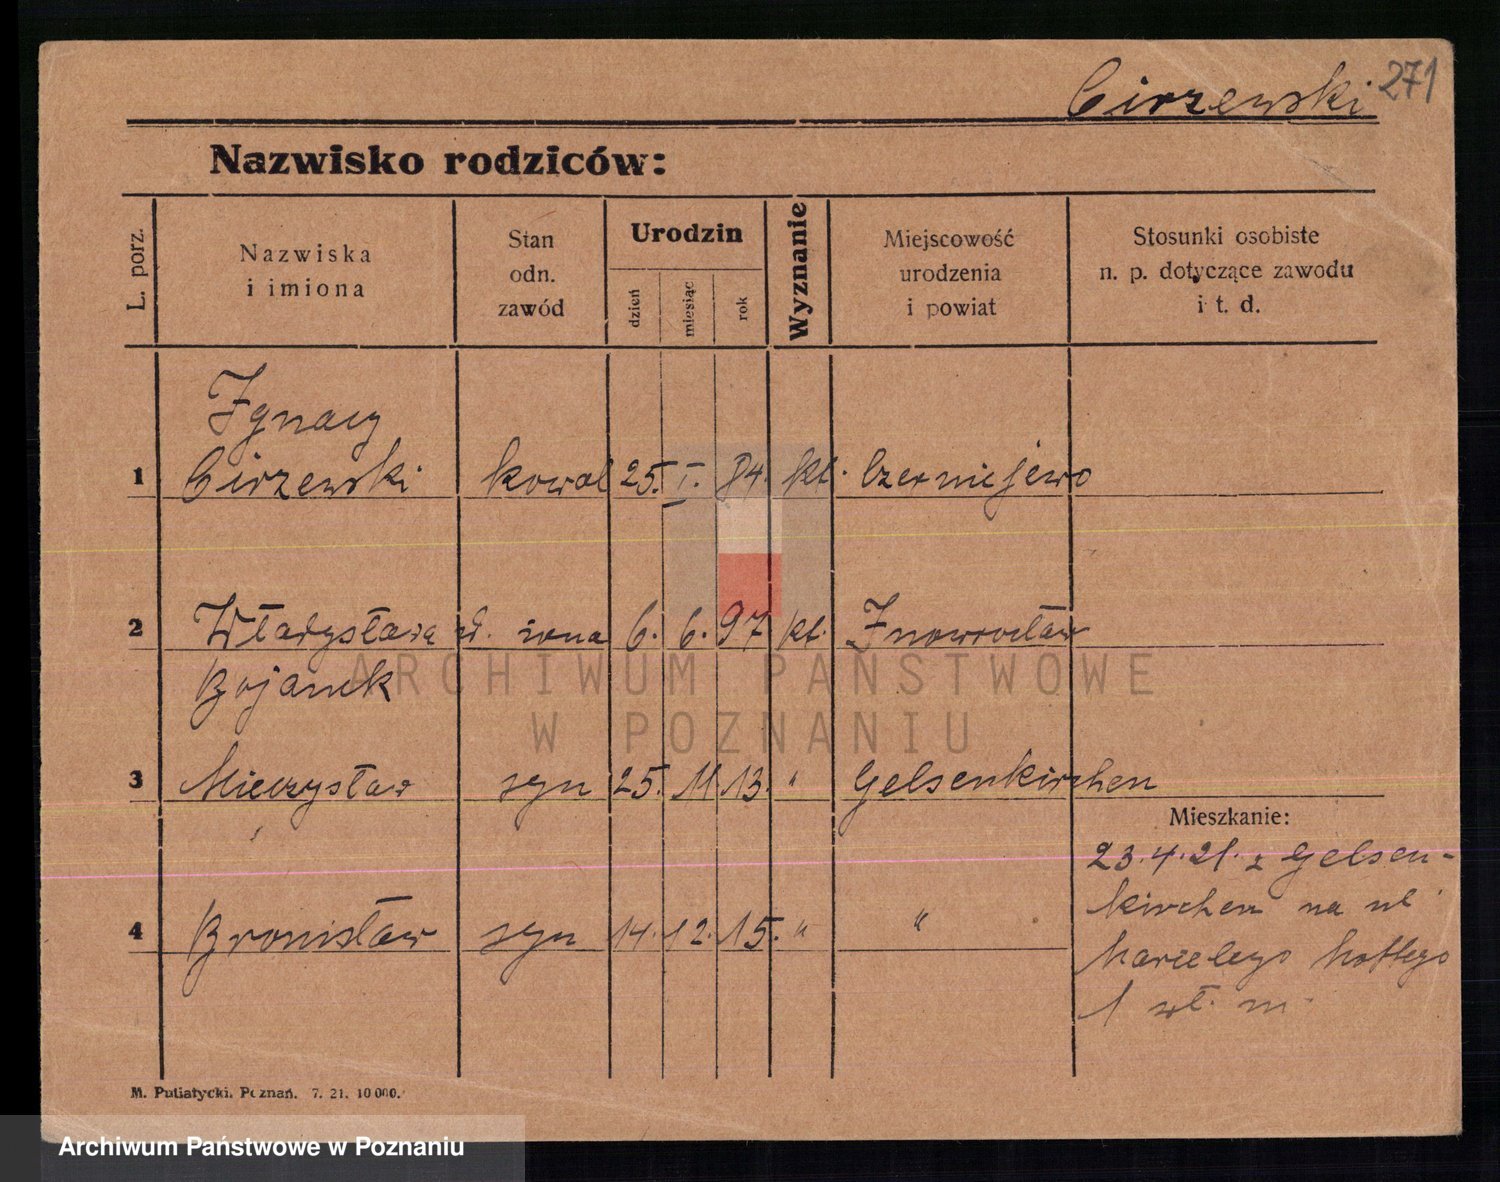 Cirzewski 271
Nazwisko rodziców:
L. porz.
Nazwiska
i imiona
Stan
odn.
zawód
Urodzin
dzień
miesiąc
rok
Wyznanie
Miejscowość
urodzenia
i powiat
Stosunki osobiste
n. p. dotyczące zawodu
i t. d.
Ignacy
1 Cirzewski kowal 25. I. 84. kt. Czerniejewo
2 Władysława żona 6. 6. 97 kt. Inowrocław
Bojanek
3 Mieczysław syn 25. 11. 13. " Gelsenkirchen
Mieszkanie:
23.4.21. z Gelsen-
kirchen na ul
4 Bronisław syn 14. 12. 15. " "
Marcelego Mottego
1 wł. m.
M. Putiatycki. Poznań. 7. 21. 10 000.
ARCHIWUM PAŃSTWOWE
W POZNANIU
Archiwum Państwowe w Poznaniu